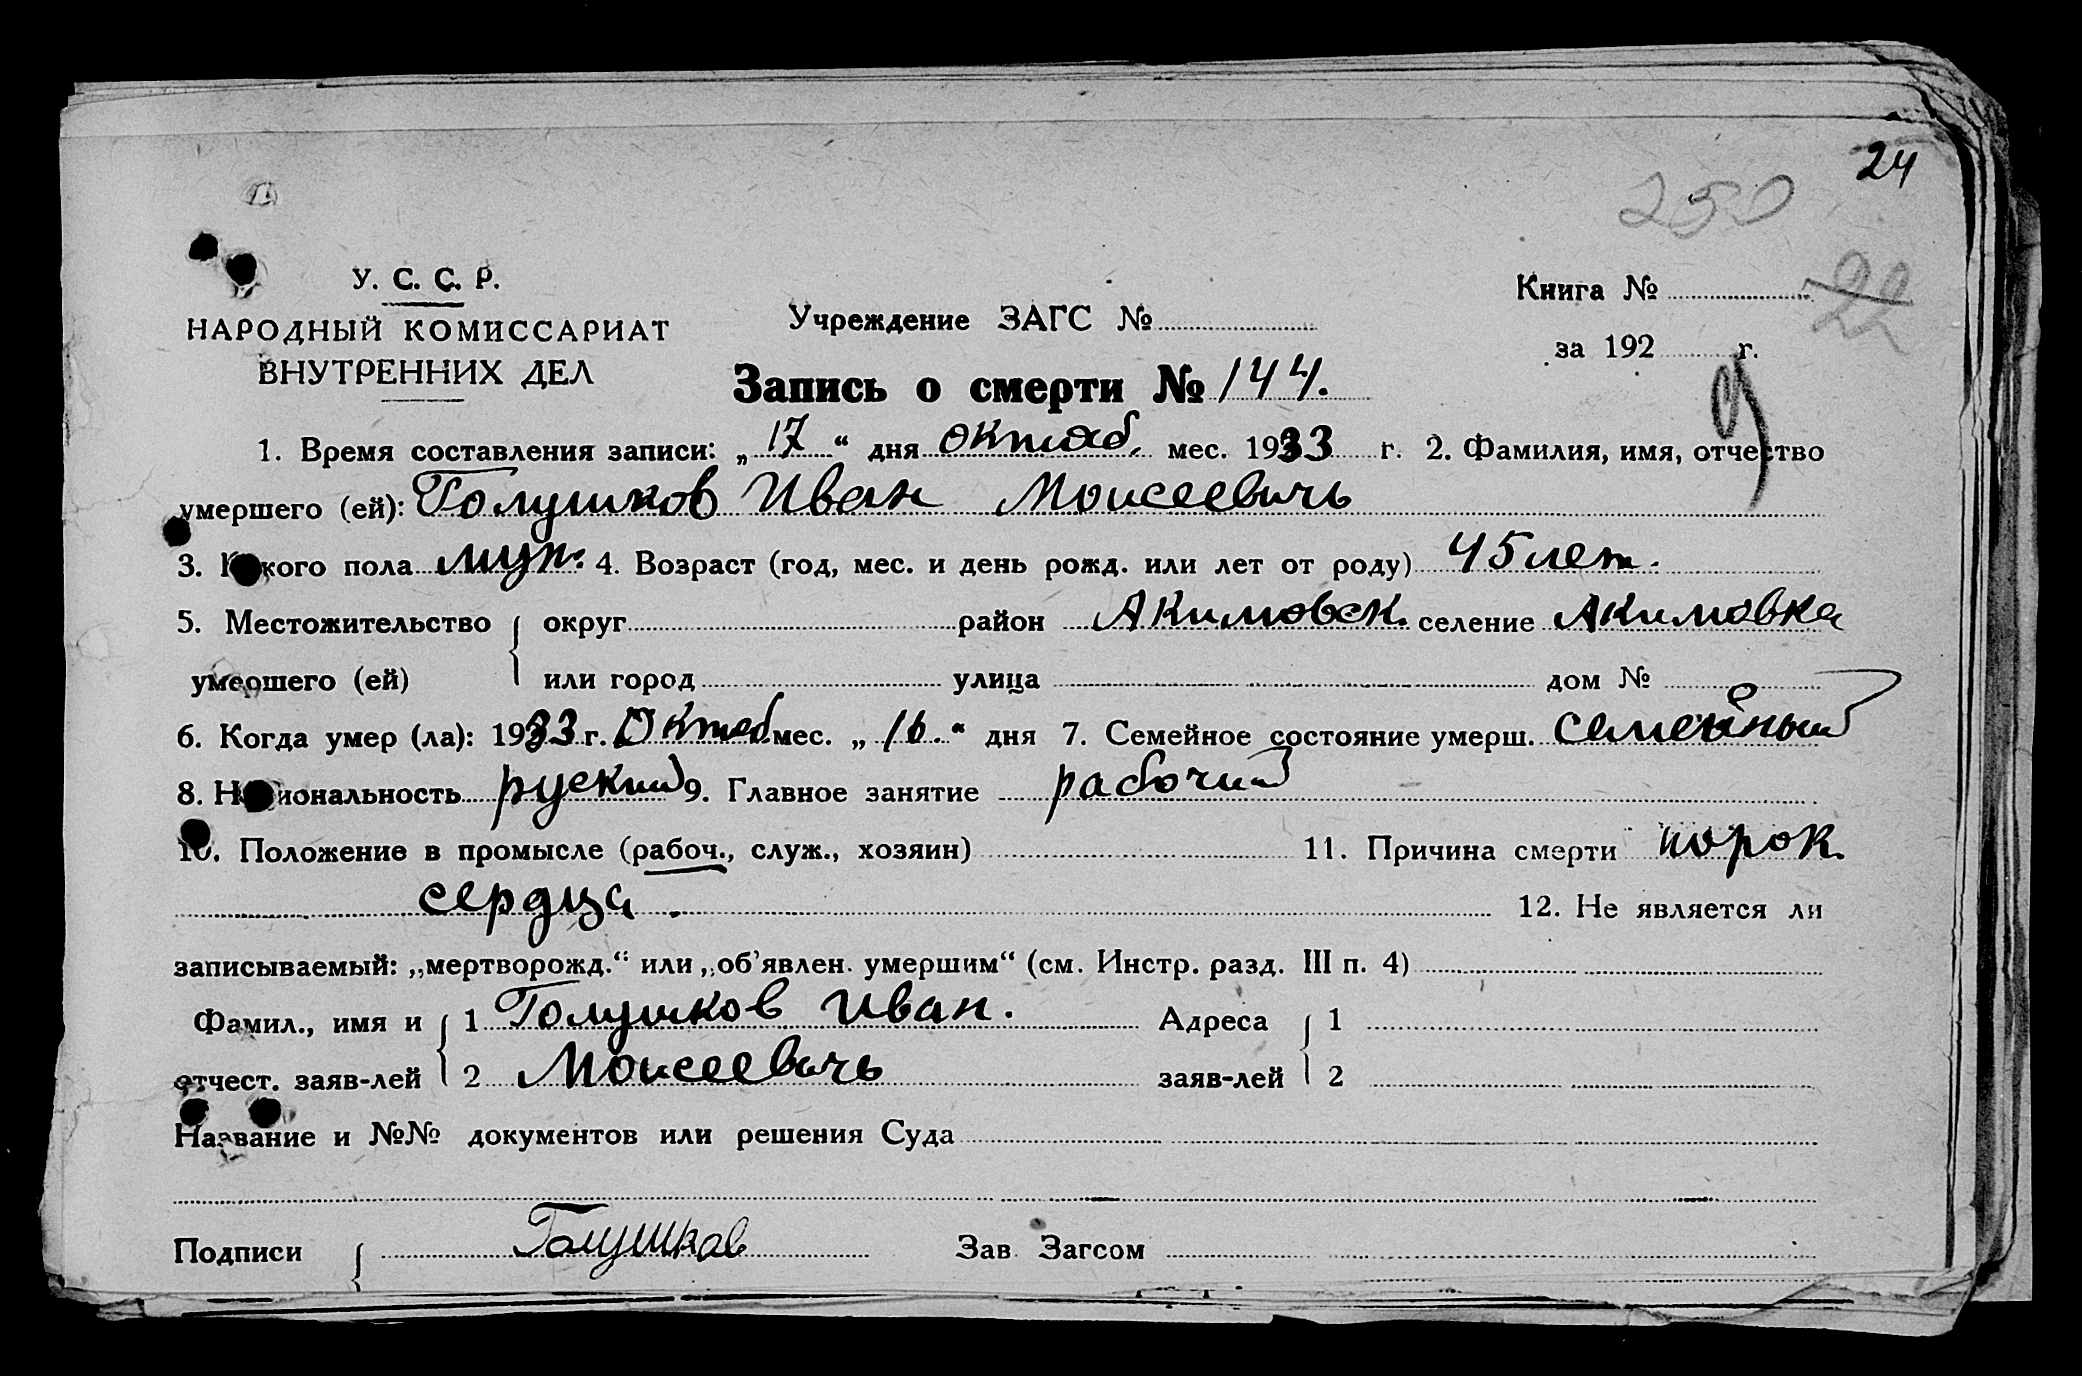 24
250
22
У. С. С. Р.
НАРОДНЫЙ КОМИССАРИАТ
ВНУТРЕННИХ ДЕЛ
Учреждение ЗАГС №
Книга №
за 192 г.
Запись о смерти № 144.
1. Время составления записи: „17“ дня октяб. мес. 1933 г. 2. Фамилия, имя, отчество
умершего (ей): Голушков Иван Моисеевичь
3. Какого пола муж. 4. Возраст (год, мес. и день рожд. или лет от роду) 45 лет.
5. Местожительство округ район Акимовск. селение Акимовка
умершего (ей) или город улица дом №
6. Когда умер (ла): 1933 г. Октяб мес. „16.“ дня 7. Семейное состояние умерш. семейный
8. Национальность руский 9. Главное занятие рабочий
10. Положение в промысле (рабоч., служ., хозяин) 11. Причина смерти порок
сердца. 12. Не является ли
записываемый: „мертворожд.“ или „об’явлен. умершим“ (см. Инстр. разд. III п. 4)
Фамил., имя и 1 Голушков Иван. Адреса 1
отчест. заяв-лей 2 Моисеевичь заяв-лей 2
Название и №№ документов или решения Суда
Подписи Голушков Зав. Загсом